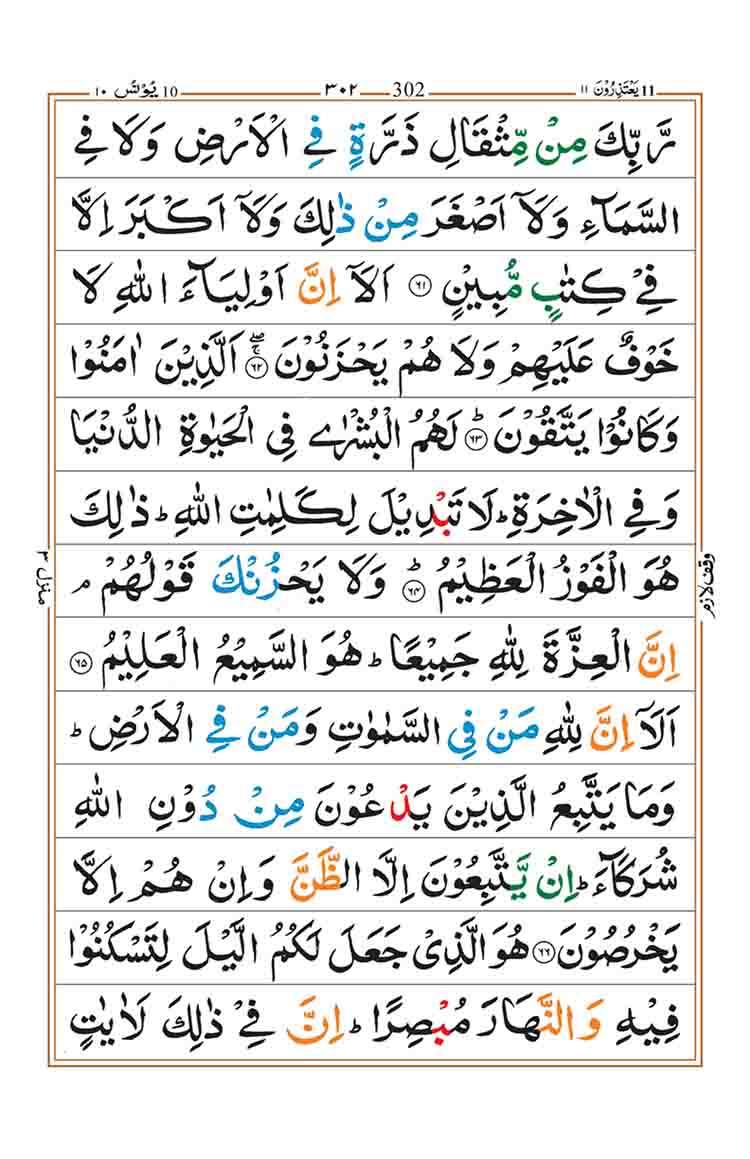 ١٠ يُوۡنُس 10
٣٠٢ 302
١١ يَعْتَذِرُوْنَ 11
رَّبِّكَ مِنْ مِّثْقَالِ ذَرَّةٍ فِي الْاَرْضِ وَلَا فِي
السَّمَآءِ وَلَآ اَصْغَرَ مِنْ ذٰلِكَ وَلَآ اَكْبَرَ اِلَّا
فِيْ كِتٰبٍ مُّبِيْنٍ ۝٦١ اَلَآ اِنَّ اَوْلِيَآءَ اللّٰهِ لَا
خَوْفٌ عَلَيْهِمْ وَلَا هُمْ يَحْزَنُوْنَ ۝٦٢ۚۖ اَلَّذِيْنَ اٰمَنُوْا
وَكَانُوْا يَتَّقُوْنَ ۝٦٣ؕ لَهُمُ الْبُشْرٰي فِي الْحَيٰوةِ الدُّنْيَا
وَفِي الْاٰخِرَةِ ؕ لَا تَبْدِيْلَ لِكَلِمٰتِ اللّٰهِ ؕ ذٰلِكَ
هُوَ الْفَوْزُ الْعَظِيْمُ ۝٦٤ؕ وَلَا يَحْزُنْكَ قَوْلُهُمْ ۘ
اِنَّ الْعِزَّةَ لِلّٰهِ جَمِيْعًا ؕ هُوَ السَّمِيْعُ الْعَلِيْمُ ۝٦٥
اَلَآ اِنَّ لِلّٰهِ مَنْ فِي السَّمٰوٰتِ وَمَنْ فِي الْاَرْضِ ؕ
وَمَا يَتَّبِعُ الَّذِيْنَ يَدْعُوْنَ مِنْ دُوْنِ اللّٰهِ
شُرَكَآءَ ؕ اِنْ يَّتَّبِعُوْنَ اِلَّا الظَّنَّ وَاِنْ هُمْ اِلَّا
يَخْرُصُوْنَ ۝٦٦ هُوَ الَّذِيْ جَعَلَ لَكُمُ الَّيْلَ لِتَسْكُنُوْا
فِيْهِ وَالنَّهَارَ مُبْصِرًا ؕ اِنَّ فِيْ ذٰلِكَ لَاٰيٰتٍ
وقف لازم
منزل ٣